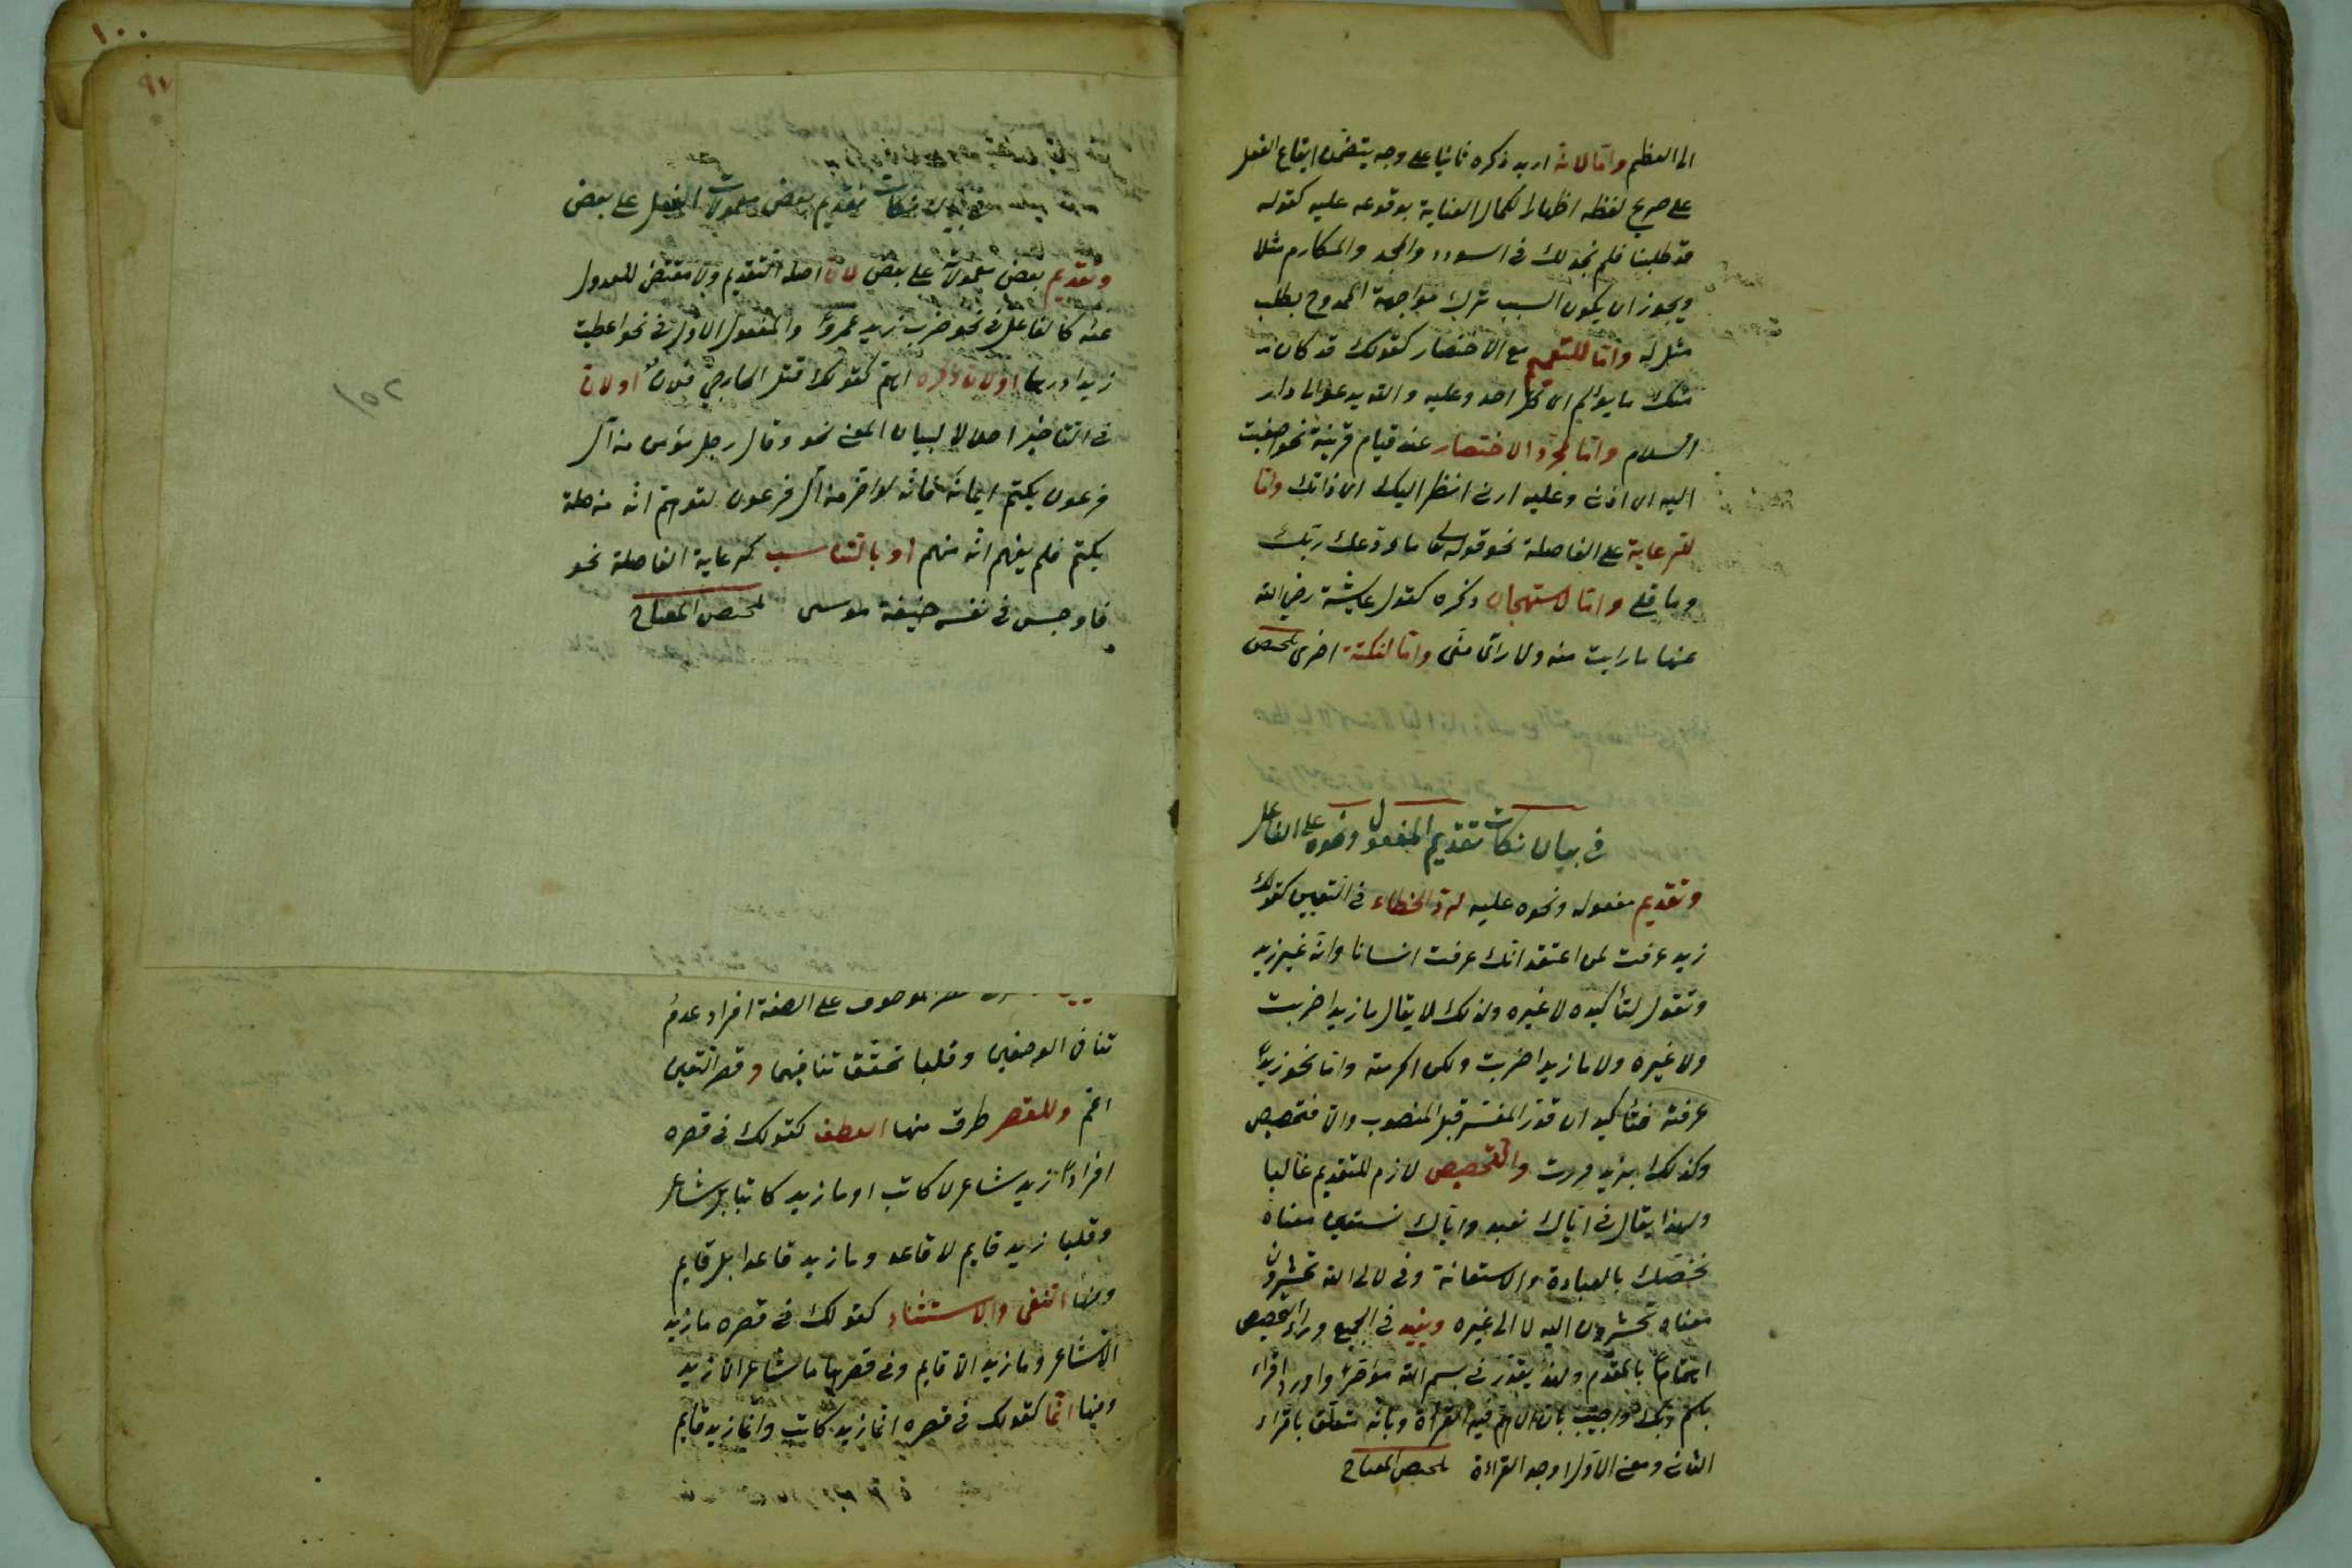 الى العظم واما لانه اريد ذكره ثانيا على وجه يتضمن ايقاع الفعل
على صريح لفظه اظهارا لكمال العناية بوقوعه عليه كقوله
قد طلبنا فلم نجد لك فى السودد والمجد والمكارم مثلا
ويجوز ان يكون السبب ترك مواجهة الممدوح بطلب
مثل له واما للتعميم مع الاختصار كقولك قد كان
منك ما يؤلم اى كل احد وعليه والله يدعو الى دار
السلام واما لمجرد الاختصار عند قيام قرينة نحو اصغيت
اليه اى اذنى وعليه ارنى انظر اليك اى ذاتك واما
للرعاية على الفاصلة نحو قوله تعالى ما ودعك ربك
وما قلى واما لاستهجان ذكره كقول عايشة رضى الله
عنها ما رايت منه ولا راى منى واما لنكتة اخرى تلخيص
فى بيان نكات تقديم المفعول ونحوه على الفاعل
وتقديم مفعوله ونحوه عليه لرد الخطاء فى التعيين كقولك
زيدا عرفت لمن اعتقد انك عرفت انسانا وانه غير زيد
وتقول لتأكيده لا غيره ولذلك لا يقال ما زيدا ضربت
ولا غيره ولا ما زيدا ضربت ولكن اكرمته واما نحو زيدا
عرفته فتأكيد ان قدر المفسر قبل المنصوب والا فتخصيص
وكذلك بزيد مررت والتخصيص لازم للتقديم غالبا
ولهذا يقال فى اياك نعبد واياك نستعين معناه
نخصك بالعبادة والاستعانة وفى لالى الله تحشرون
معناه تحشرون اليه لا الى غيره ويفيد فى الجميع وراء التخصيص
اهتماما بالمقدم ولهذا يقدر فى بسم الله مؤخرا واورد اقراء
باسم ربك واجيب بان الاهم فيه القراءة وبانه متعلق باقراء
الثانى ومعنى الاول اوجد القراءة تلخيص المفتاح
١٠٠
٩٧
فى بيان نكات تقديم بعض معمولات الفعل على بعض
وتقديم بعض معمولاته على بعض لان اصله التقديم ولا مقتضى للعدول
عنه كالفاعل فى نحو ضرب زيد عمروا والمفعول الاول فى نحو اعطيت
زيدا درهما او لان ذكره اهم كقولك قتل الخارجى فلان او لان
فى التأخير اخلالا لبيان المعنى نحو وقال رجل مؤمن من آل
فرعون يكتم ايمانه فانه لو اخر من آل فرعون لتوهم انه من صلة
يكتم فلم يفهم انه منهم او بالتناسب كرعاية الفاصلة نحو
فاوجس فى نفسه خيفة موسى تلخيص المفتاح
١٥٢
الموصوف على الصفة افراد عدم
تنافى الوصفين وقلبا تحقق تنافيهما وقصر التعيين
اعم وللقصر طرق منها العطف كقولك فى قصره
افرادا زيد شاعر لا كاتب او ما زيد كاتبا بل شاعر
وقلبا زيد قايم لا قاعد وما زيد قاعدا بل قايم
ومنها النفى والاستثناء كقولك فى قصره ما زيد
الا شاعر وما زيد الا قايم وفى قصرها ما شاعر الا زيد
ومنها انما كقولك فى قصره انما زيد كاتب وانما زيد قايم